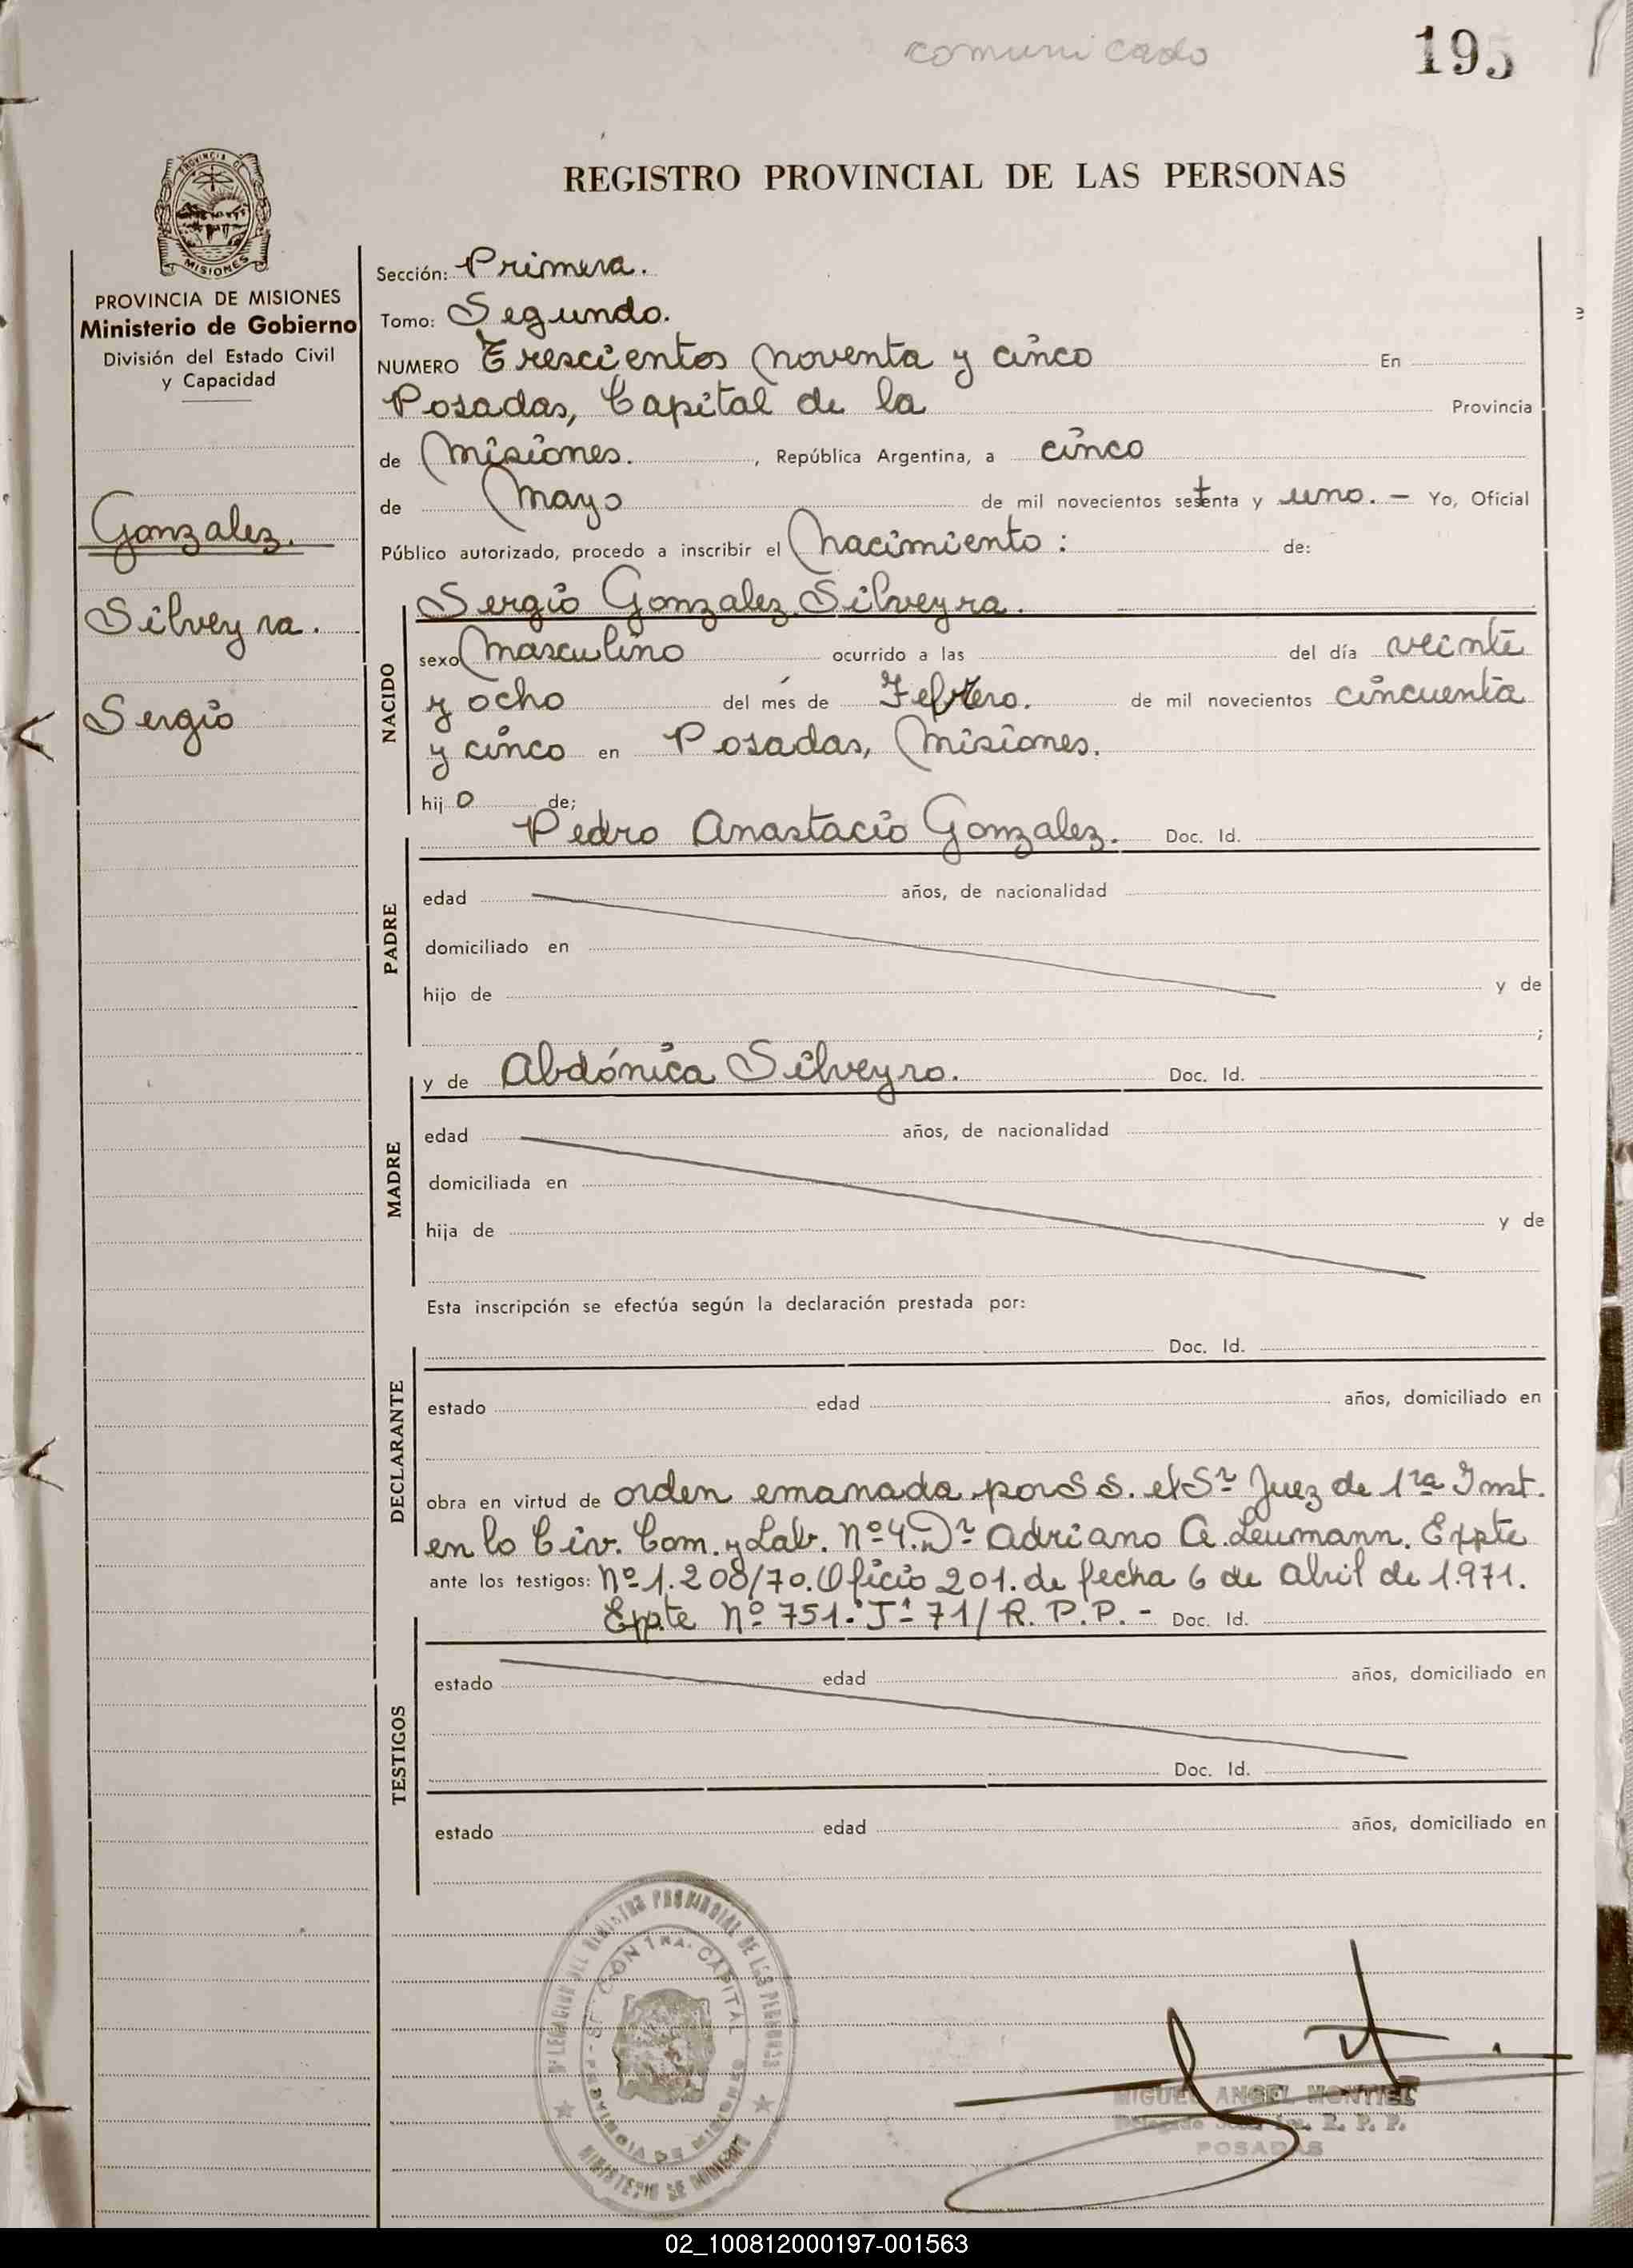 comunicado
195
REGISTRO PROVINCIAL DE LAS PERSONAS
MISIONES
PROVINCIA DE MISIONES
Ministerio de Gobierno
División del Estado Civil
y Capacidad
Gonzalez.
Silveyra.
Sergio
Sección: Primera.
Tomo: Segundo.
NUMERO Trescientos noventa y cinco En
Posadas, Capital de la Provincia
de Misiones. , República Argentina, a cinco
de Mayo de mil novecientos setenta y uno. — Yo, Oficial
Público autorizado, procedo a inscribir el nacimiento : de:
NACIDO
Sergio Gonzalez Silveyra.
sexo masculino ocurrido a las del día veinte
y ocho del més de Febrero. de mil novecientos cincuenta
y cinco en Posadas, Misiones.
hij o de;
PADRE
Pedro Anastacio Gonzalez. Doc. Id.
edad años, de nacionalidad
domiciliado en
hijo de y de
;
MADRE
y de Abdónica Silveyro. Doc. Id.
edad años, de nacionalidad
domiciliada en
hija de y de
Esta inscripción se efectúa según la declaración prestada por:
DECLARANTE
Doc. Id.
estado edad años, domiciliado en
obra en virtud de orden emanada por S S. el Sr Juez de 1ra Inst.
en lo Civ. Com. y Lab. Nº 4. Dr Adriano A. Leumann. Expte
ante los testigos: Nº 1.208/70. Oficio 201. de fecha 6 de Abril de 1.971.
Epte Nº 751- "J" 71/ R. P. P. - Doc. Id.
TESTIGOS
estado edad años, domiciliado en
Doc. Id.
estado edad años, domiciliado en
DELEGACION DEL REGISTRO PROVINCIAL DE LAS PERSONAS
CAPITAL
PROVINCIA DE MISIONES
MINISTERIO DE GOBIERNO
MIGUEL ANGEL MONTIEL
Delegado R. P. P.
POSADAS
02_100812000197-001563